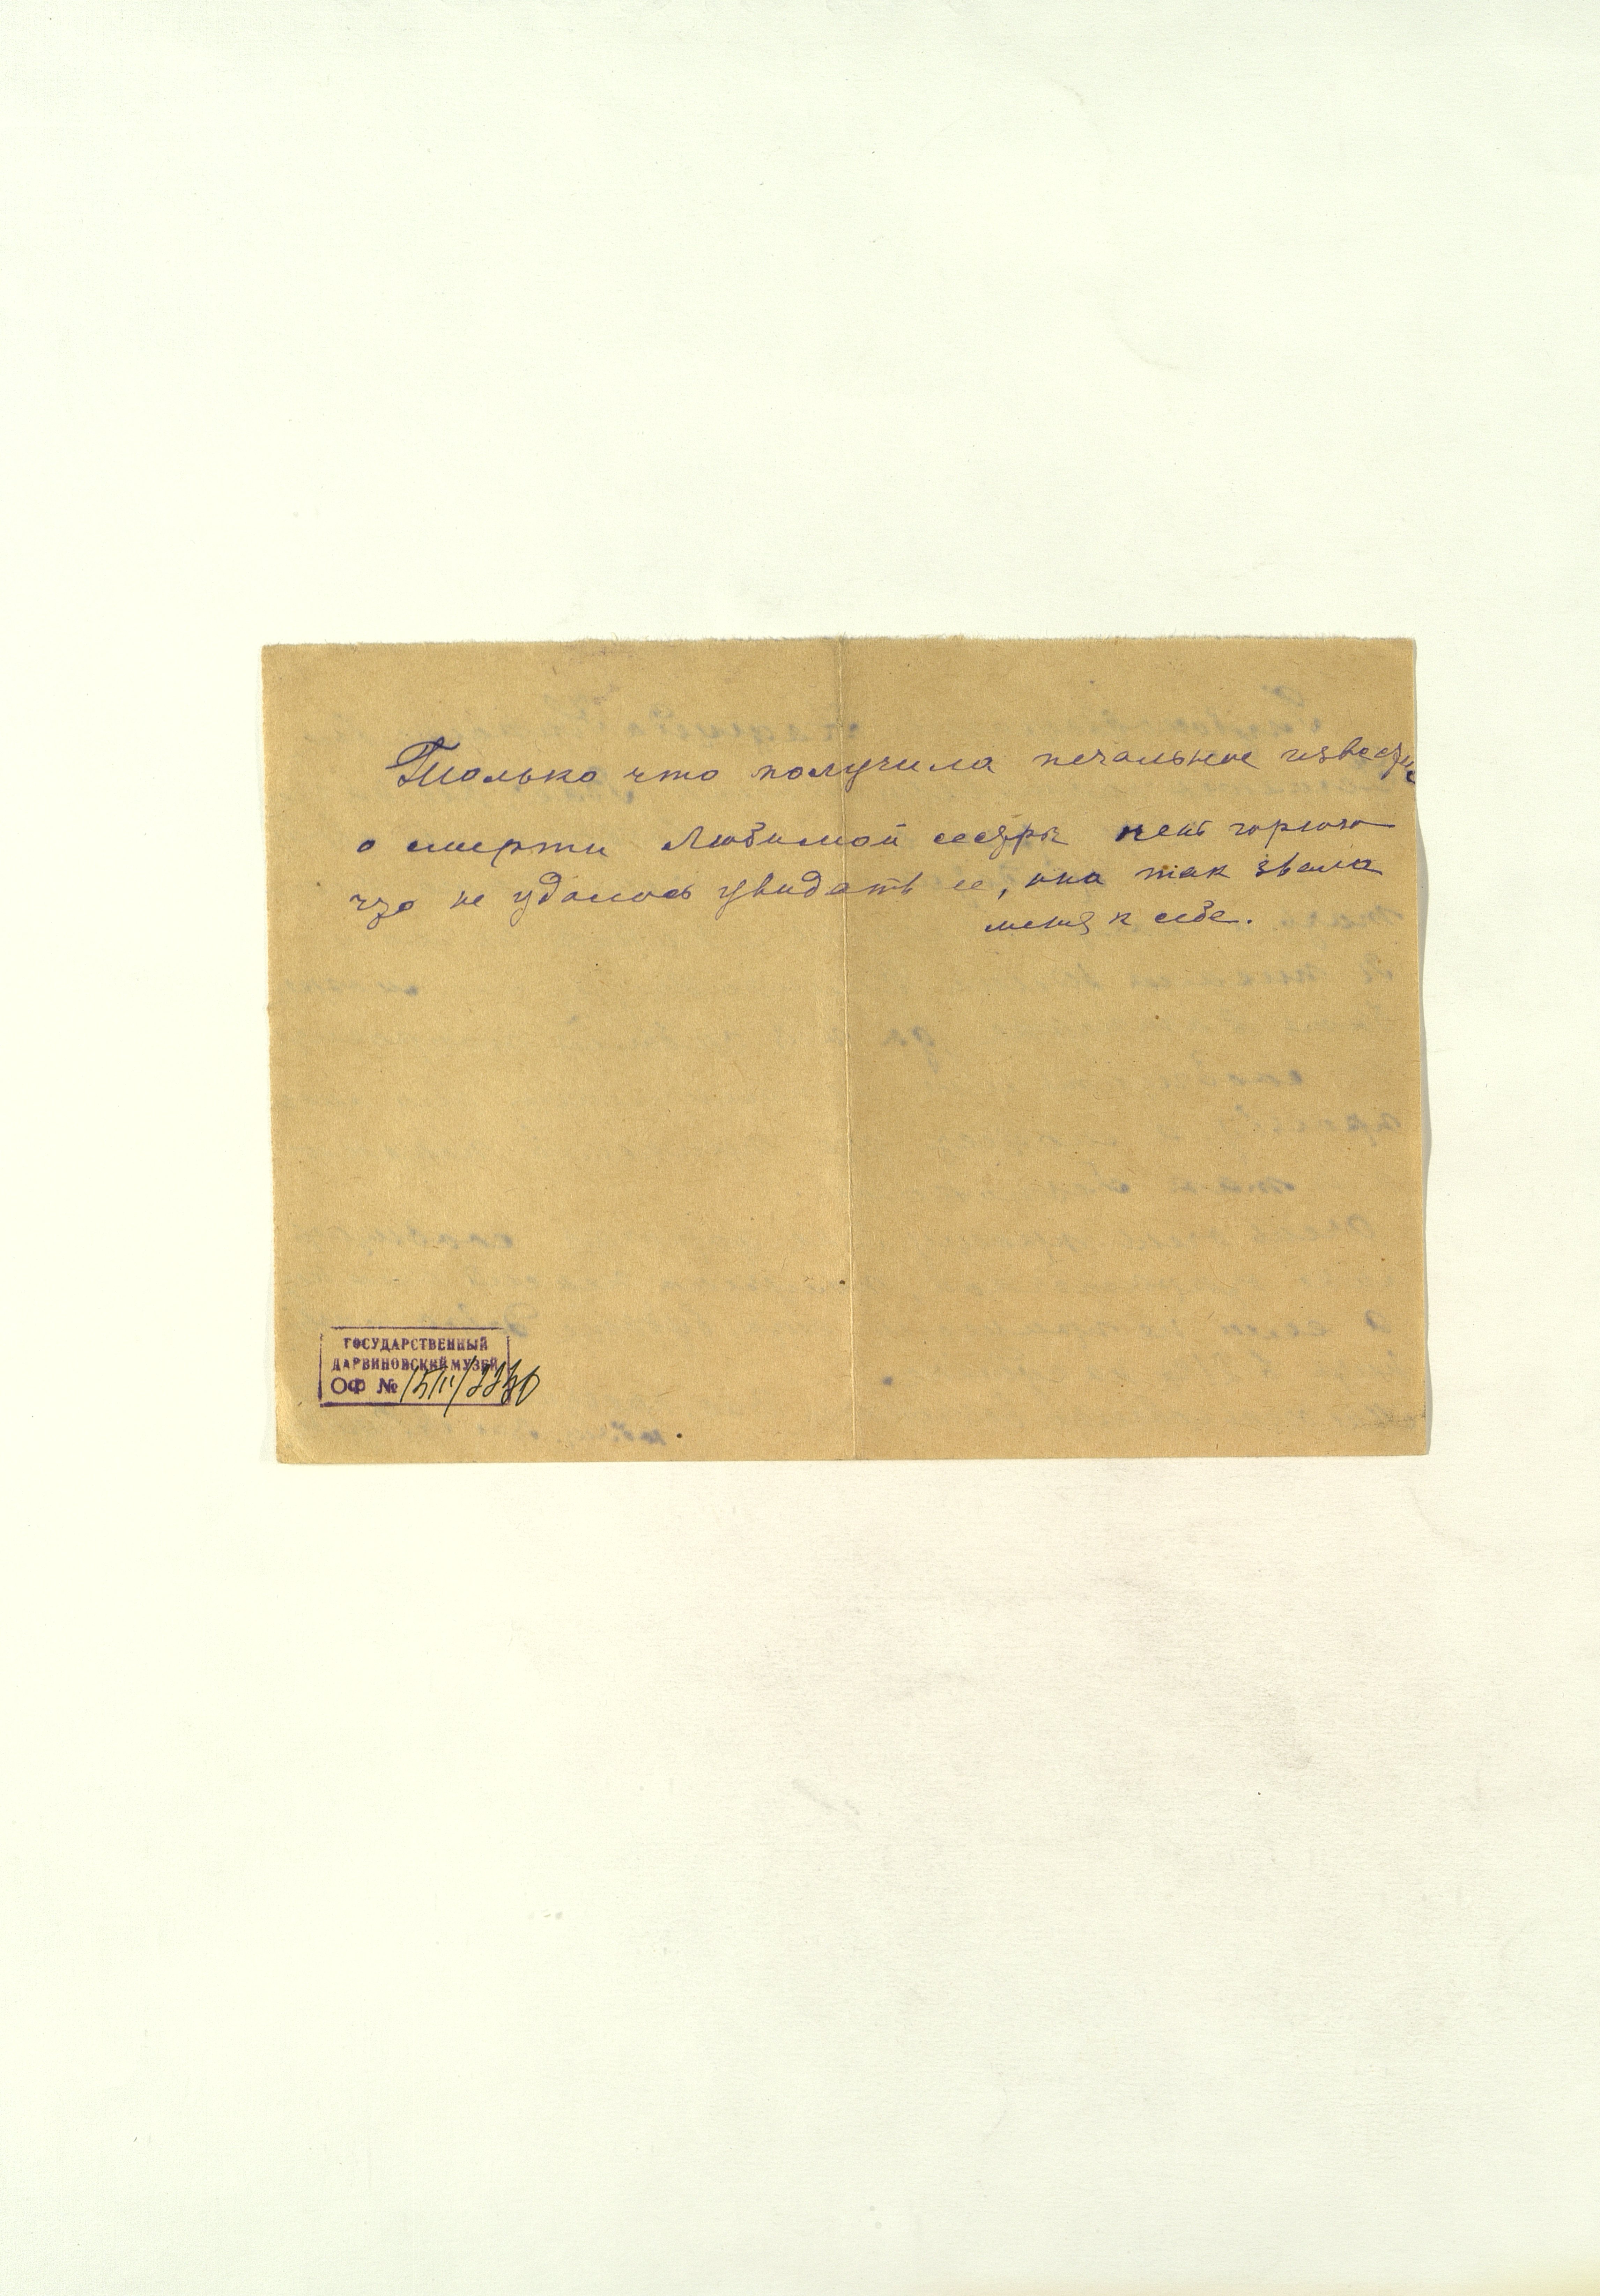 Только что получила печальное известие
о смерти любимой сестры горюю
что не удалось увидать ее, она так звала
меня к себе.
ГОСУДАРСТВЕННЫЙ
ДАРВИНОВСКИЙ МУЗЕЙ
ОФ №